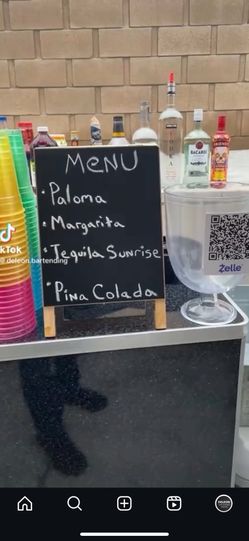 MENU
* Paloma
* Margarita
* Tequila Sunrise
* Pina Colada
BACARDI
Zelle
kTok
@ deleon.bartending